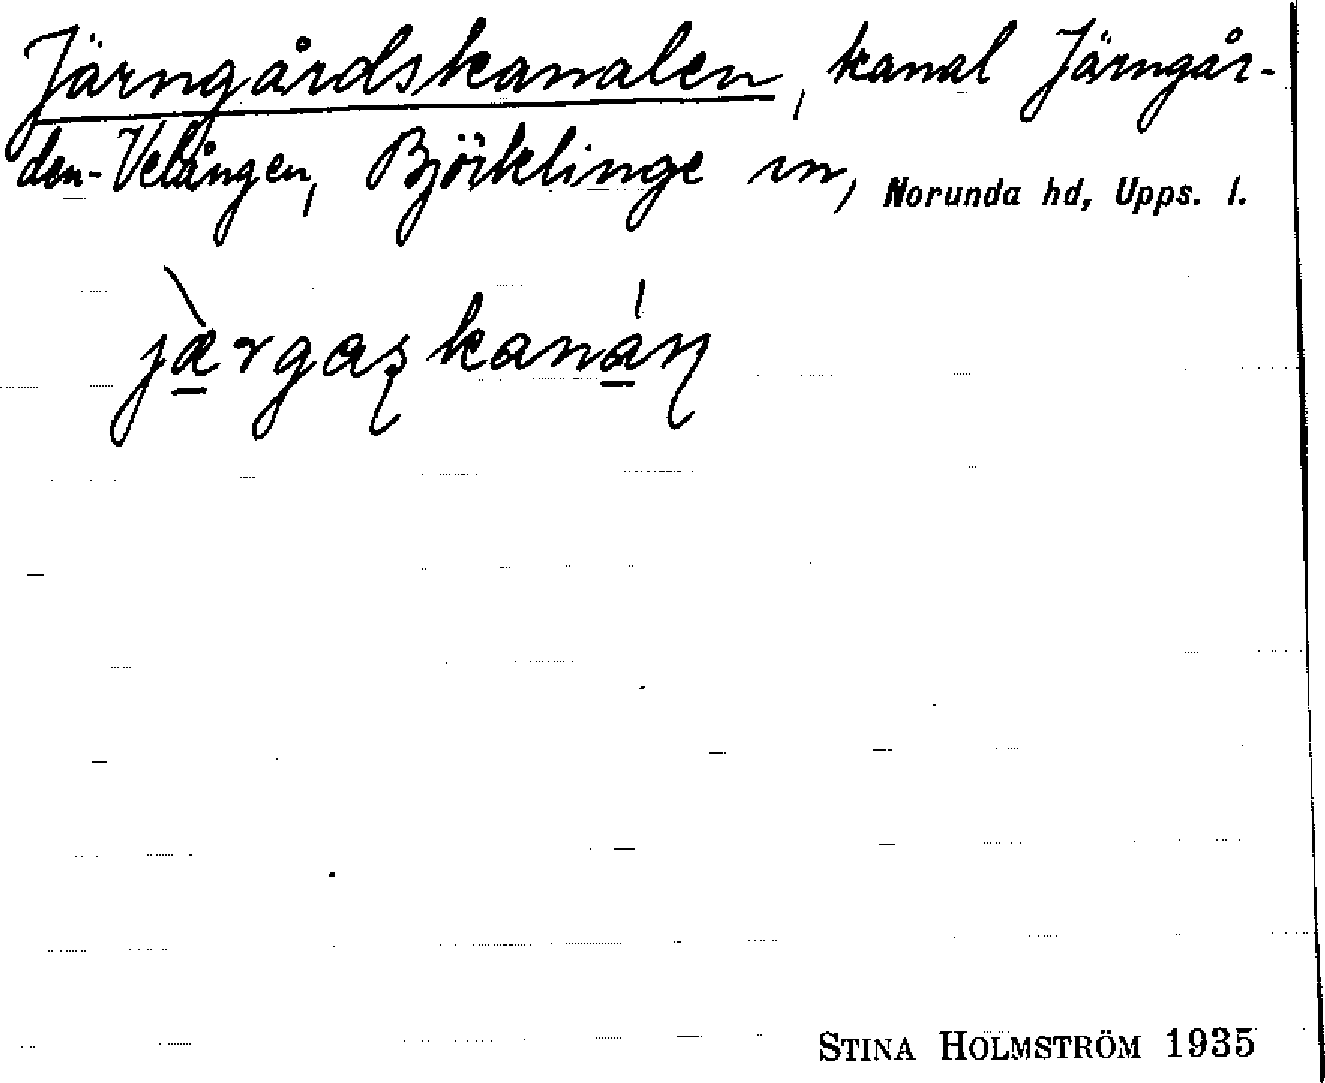 Järngårdskanalen, kanal Järngår-
den-Velången, Björklinge sn, Norunda hd, Upps. l.
jæ̀rgaʂkanáɳ
STINA HOLMSTRÖM 1935